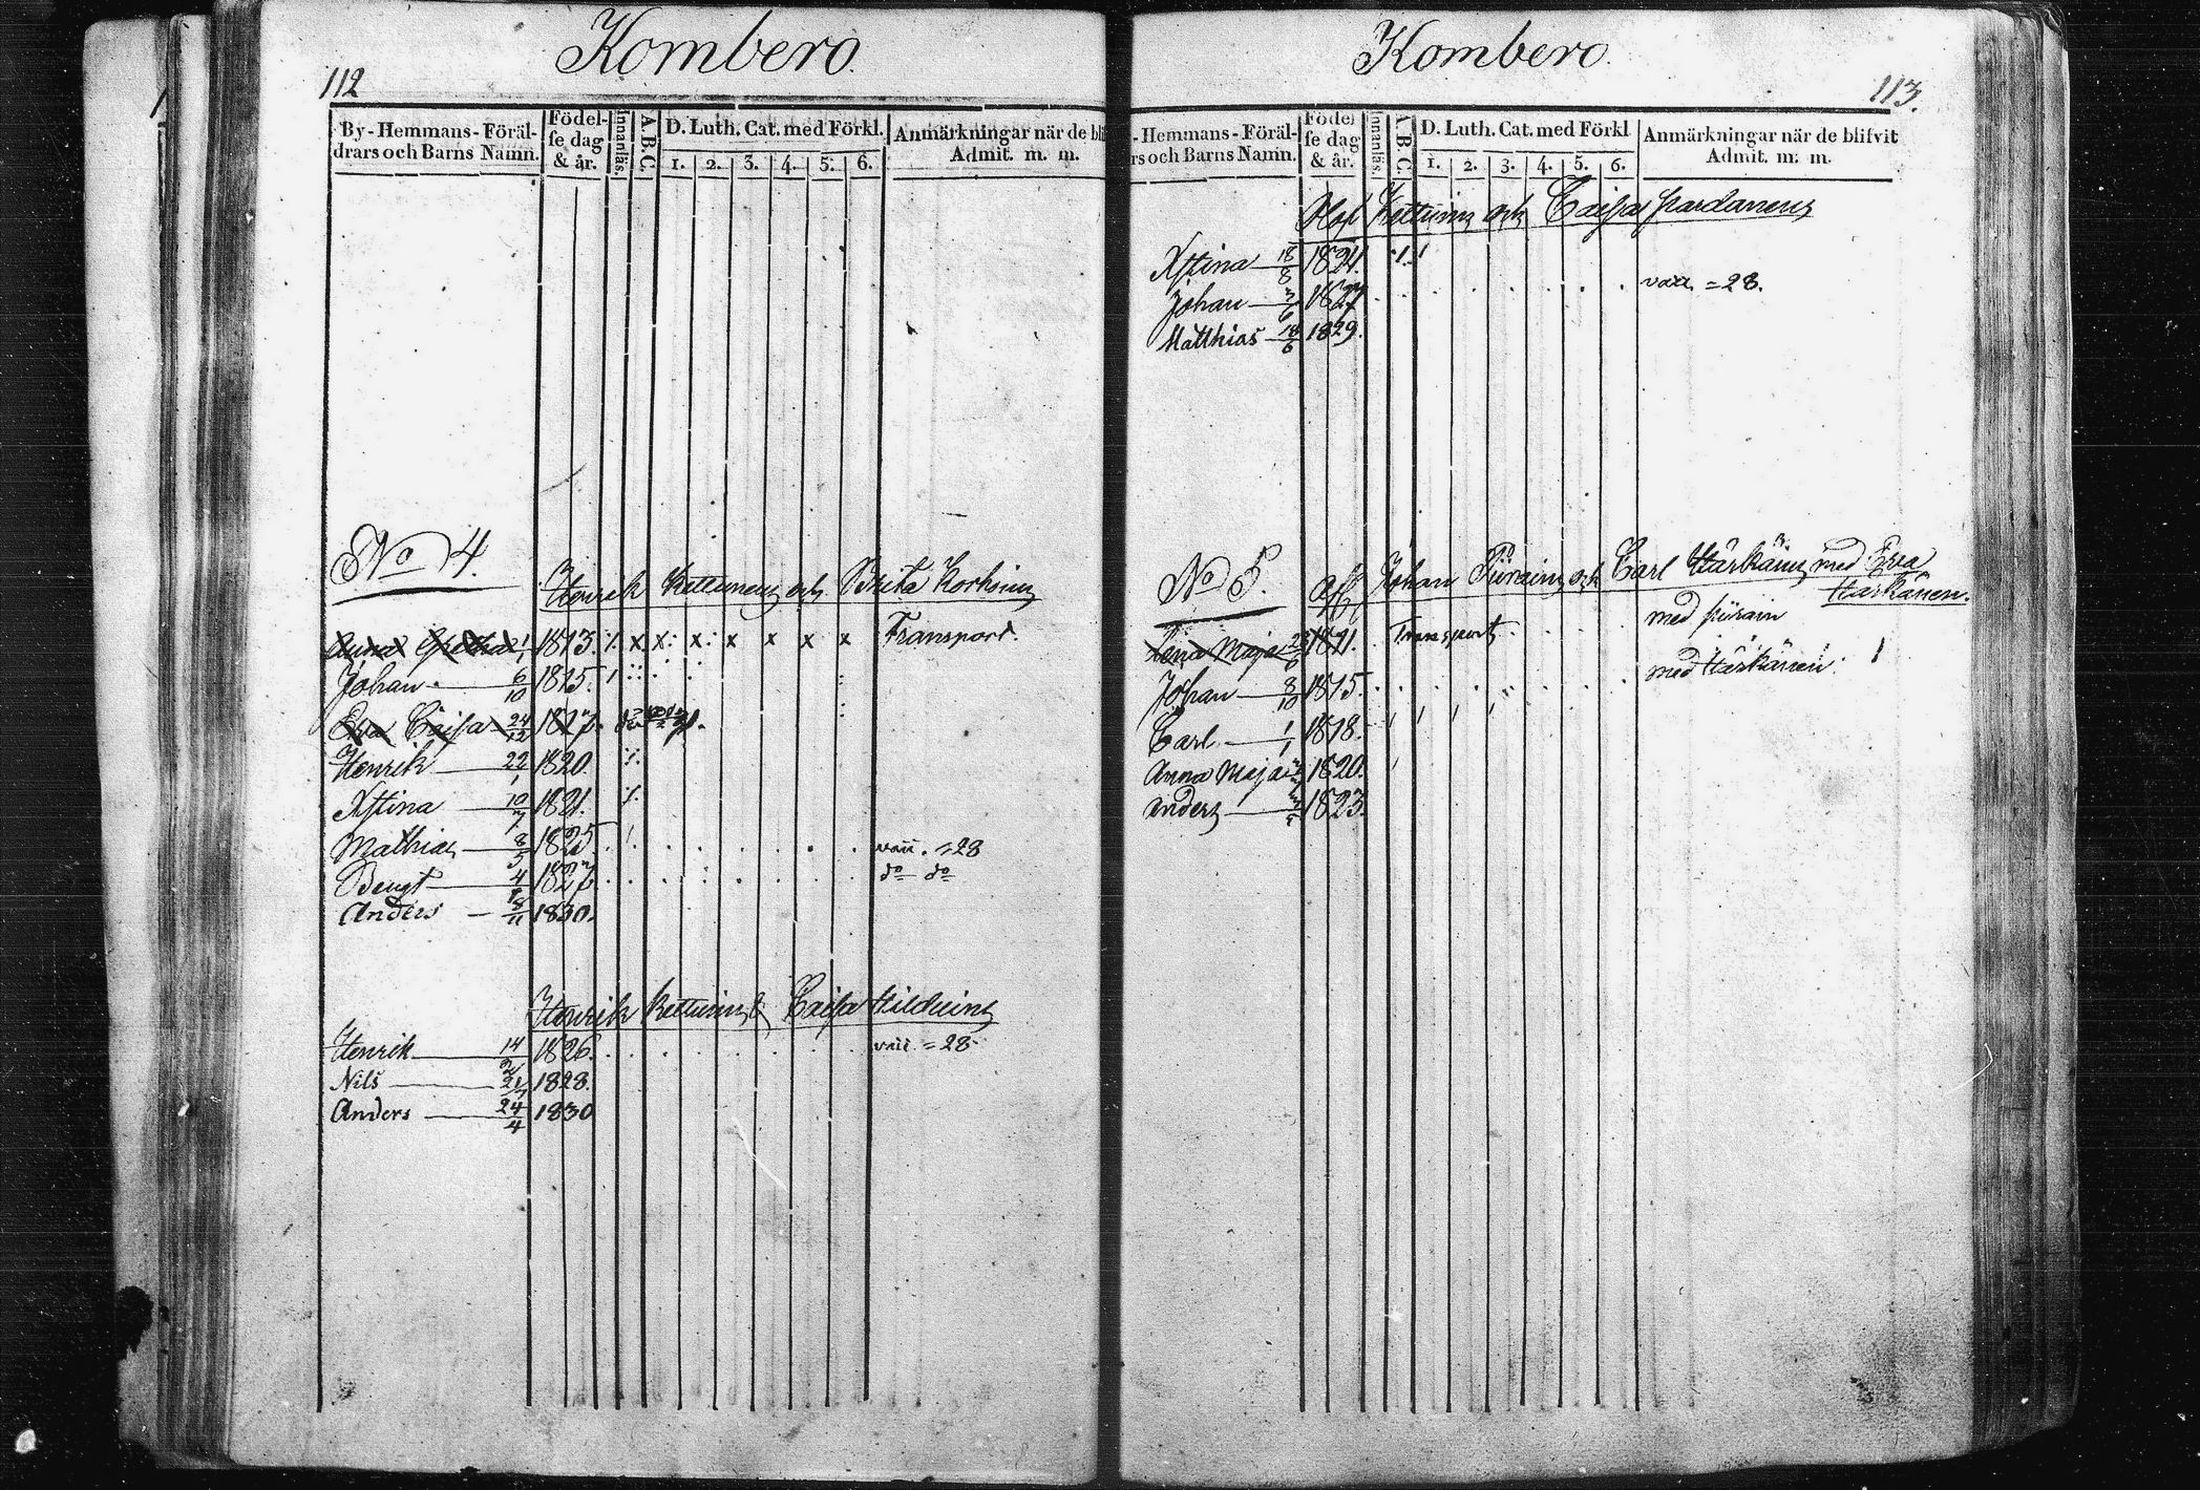 Kombero.
112
By-Hemmans-Föräl-
drars och Barns Namn.
Födel-
se dag
& år.
Innanläs.
A. B. C.
D. Luth. Cat. med Förkl.
1. 2. 3. 4. 5. 6.
Anmärkningar när de bli
Admit. m. m.
No 4.
Henrik Kettunen och Brita Korhoin
Anna Gretha 1813. Transport.
Johan 6/10 1815.
Eva Caisa 24/12 1817.
Henrik 22/1 1820.
Xstina 10/7 1821.
Mathias 8/5 1825 vacc. =28
Bengt 4 1827 do do
Anders 8/11 1830.
Henrik Kettuin & Caisa
Henrik 14/2 1826. vacc. =28
Nils 21/7 1828.
Anders 24/4 1830
Kombero.
113.
-Hemmans-Föräl-
rs och Barns Namn.
Födel
se dag
& år.
Innanläs.
A. B. C.
D. Luth. Cat. med Förkl
1. 2. 3. 4. 5. 6.
Anmärkningar när de blifvit
Admit. m. m.
Olof Kettuin och Caisa
Xstina 18/8 1824.
Johan 1827 vacc. =28.
Matthias 18/6 1829.
No 5.
Johan och Carl Härkäin med Eva
Härkänen.
Lena Maja 1811. Transport
Johan 8/10 1815. med Härkänen.
Carl 1/1 1818.
Anna Maja 1820.
Anders 1823.